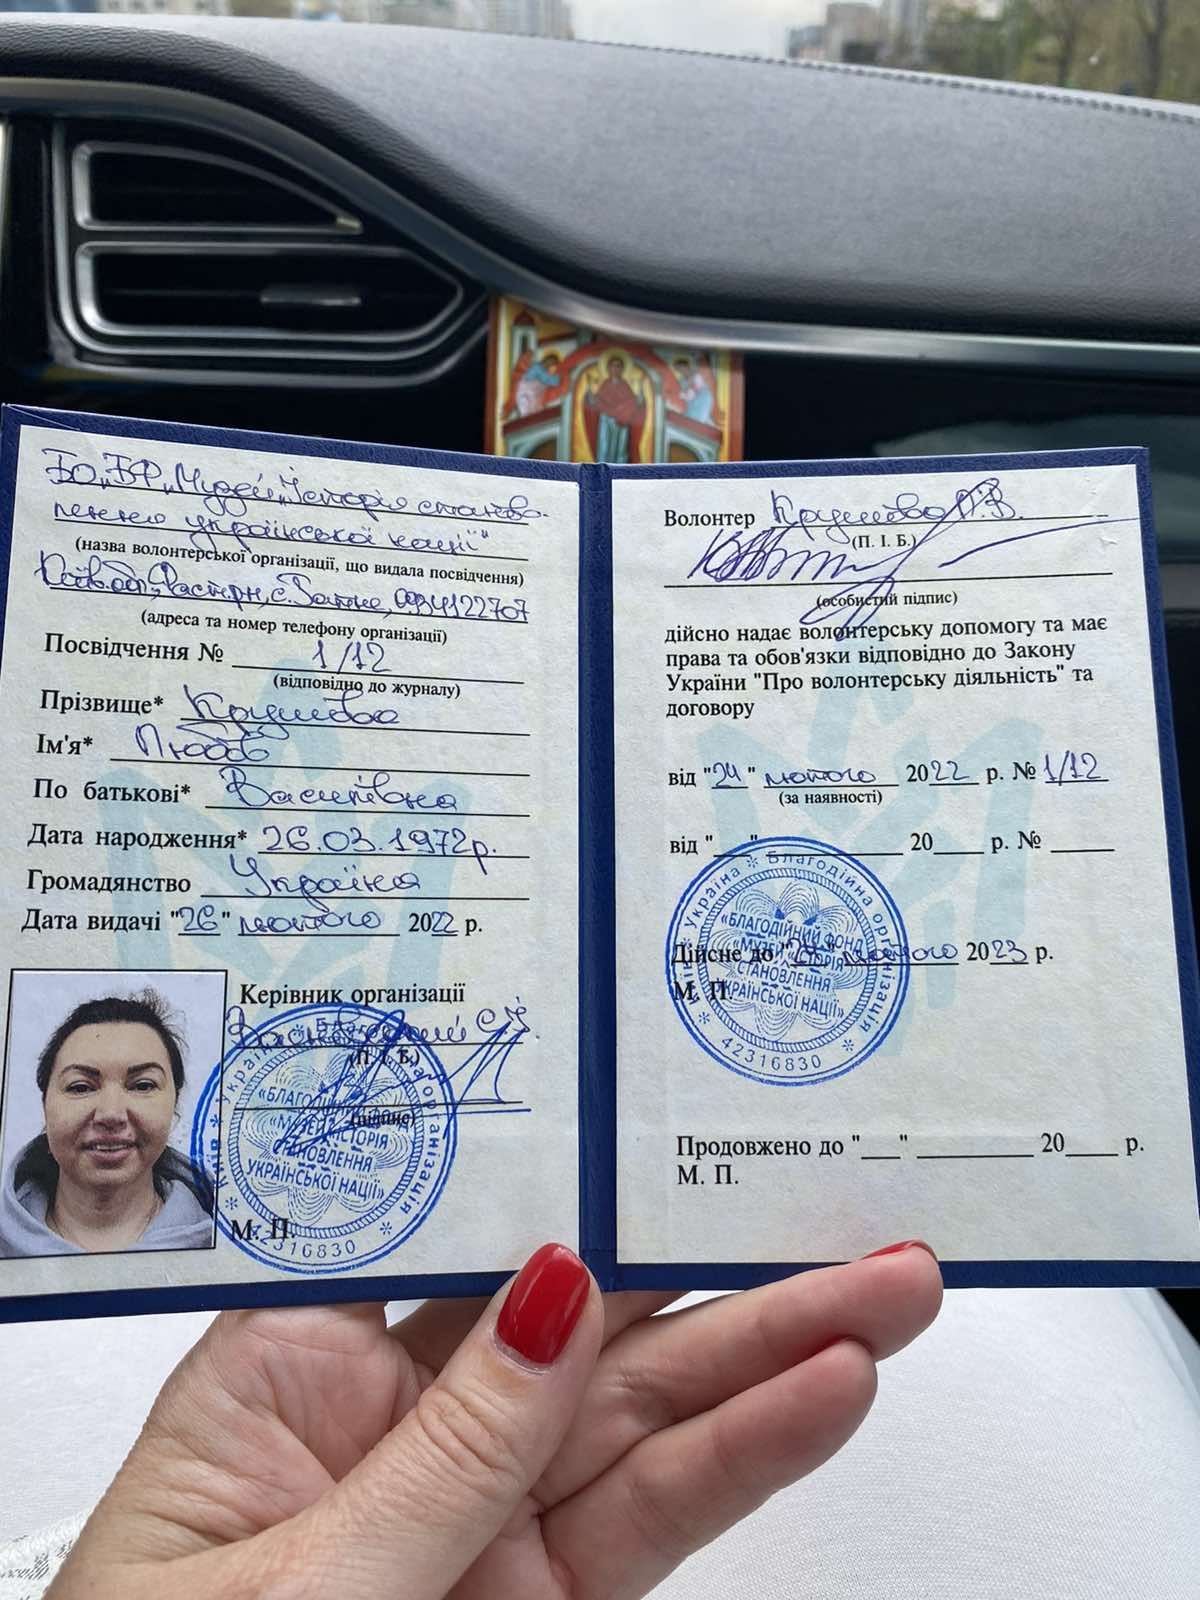 БО „БФ „Музей „Історія станов-
лення української нації"
(назва волонтерської організації, що видала посвідчення)
Київ. обл., Фастів. р-н, с. 0934122707
(адреса та номер телефону організації)
Посвідчення № 1/12
(відповідно до журналу)
Прізвище*
Ім'я* Любов
По батькові* Василівна
Дата народження* 26.03.1972р.
Громадянство Україна
Дата видачі "26" лютого 2022 р.
Керівник організації
С.І.
(П. І. Б.)
(підпис)
М. П.
Київ * Україна * Благодійна організація *
«БЛАГОДІЙНИЙ ФОНД
«МУЗЕЙ «ІСТОРІЯ
СТАНОВЛЕННЯ
УКРАЇНСЬКОЇ НАЦІЇ»
42316830
Волонтер Л.В.
(П. І. Б.)
(особистий підпис)
дійсно надає волонтерську допомогу та має
права та обов'язки відповідно до Закону
України "Про волонтерську діяльність" та
договору
від "24" лютого 2022 р. № 1/12
(за наявності)
від "___" ______ 20___ р. № ____
Дійсне до "24" лютого 2023 р.
М. П.
Київ * Україна * Благодійна організація *
«БЛАГОДІЙНИЙ ФОНД
«МУЗЕЙ «ІСТОРІЯ
СТАНОВЛЕННЯ
УКРАЇНСЬКОЇ НАЦІЇ»
42316830
Продовжено до "___" ________ 20____ р.
М. П.